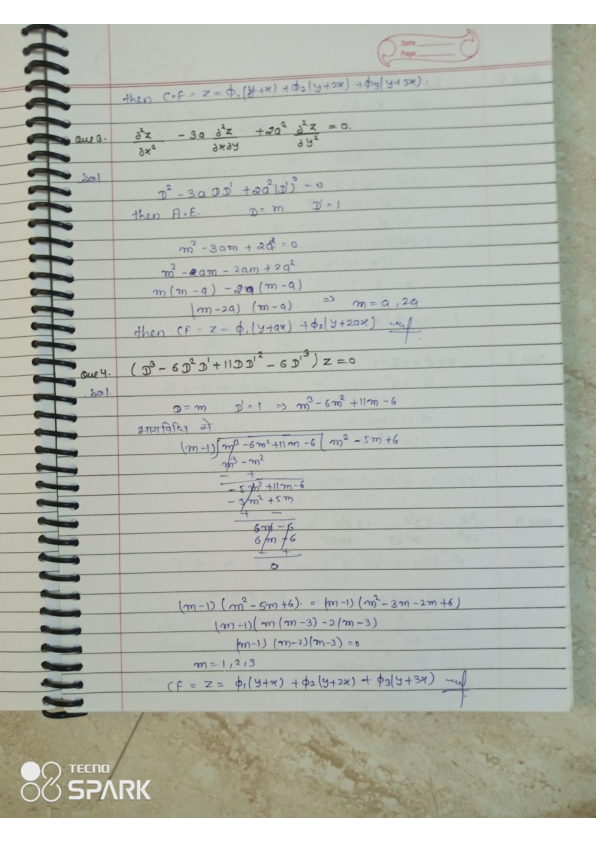 Date
Page
then C.F = Z = ϕ₁(y+x) + ϕ₂(y+2x) + ϕ₃(y+3x).
Que 3. ∂²z/∂x² - 3a ∂²z/∂x∂y + 2a² ∂²z/∂y² = 0.
Sol
D² - 3a DD' + 2a²(D')² = 0
then A.E. D = m D' = 1
m² - 3am + 2a² = 0
m² - am - 2am + 2a²
m(m-a) - 2a(m-a)
(m-2a) (m-a) ⇒ m = a, 2a
then CF = Z = ϕ₁(y+ax) + ϕ₂(y+2ax)
Que 4. (D³ - 6D²D' + 11DD'² - 6D'³) z = 0
Sol
D = m D' = 1 ⇒ m³ - 6m² + 11m - 6
भागविधि से
(m-1) m³ - 6m² + 11m - 6 ( m² - 5m + 6
m³ - m²
- +
-5m² + 11m - 6
-5m² + 5m
+ -
6m - 6
6m - 6
- +
0
(m-1) (m² - 5m + 6). = (m-1) (m² - 3m - 2m + 6)
(m-1) (m(m-3) - 2(m-3)
(m-1) (m-2) (m-3) = 0
m = 1, 2, 3
CF = Z = ϕ₁(y+x) + ϕ₂(y+2x) + ϕ₃(y+3x)
TECNO
SPARK